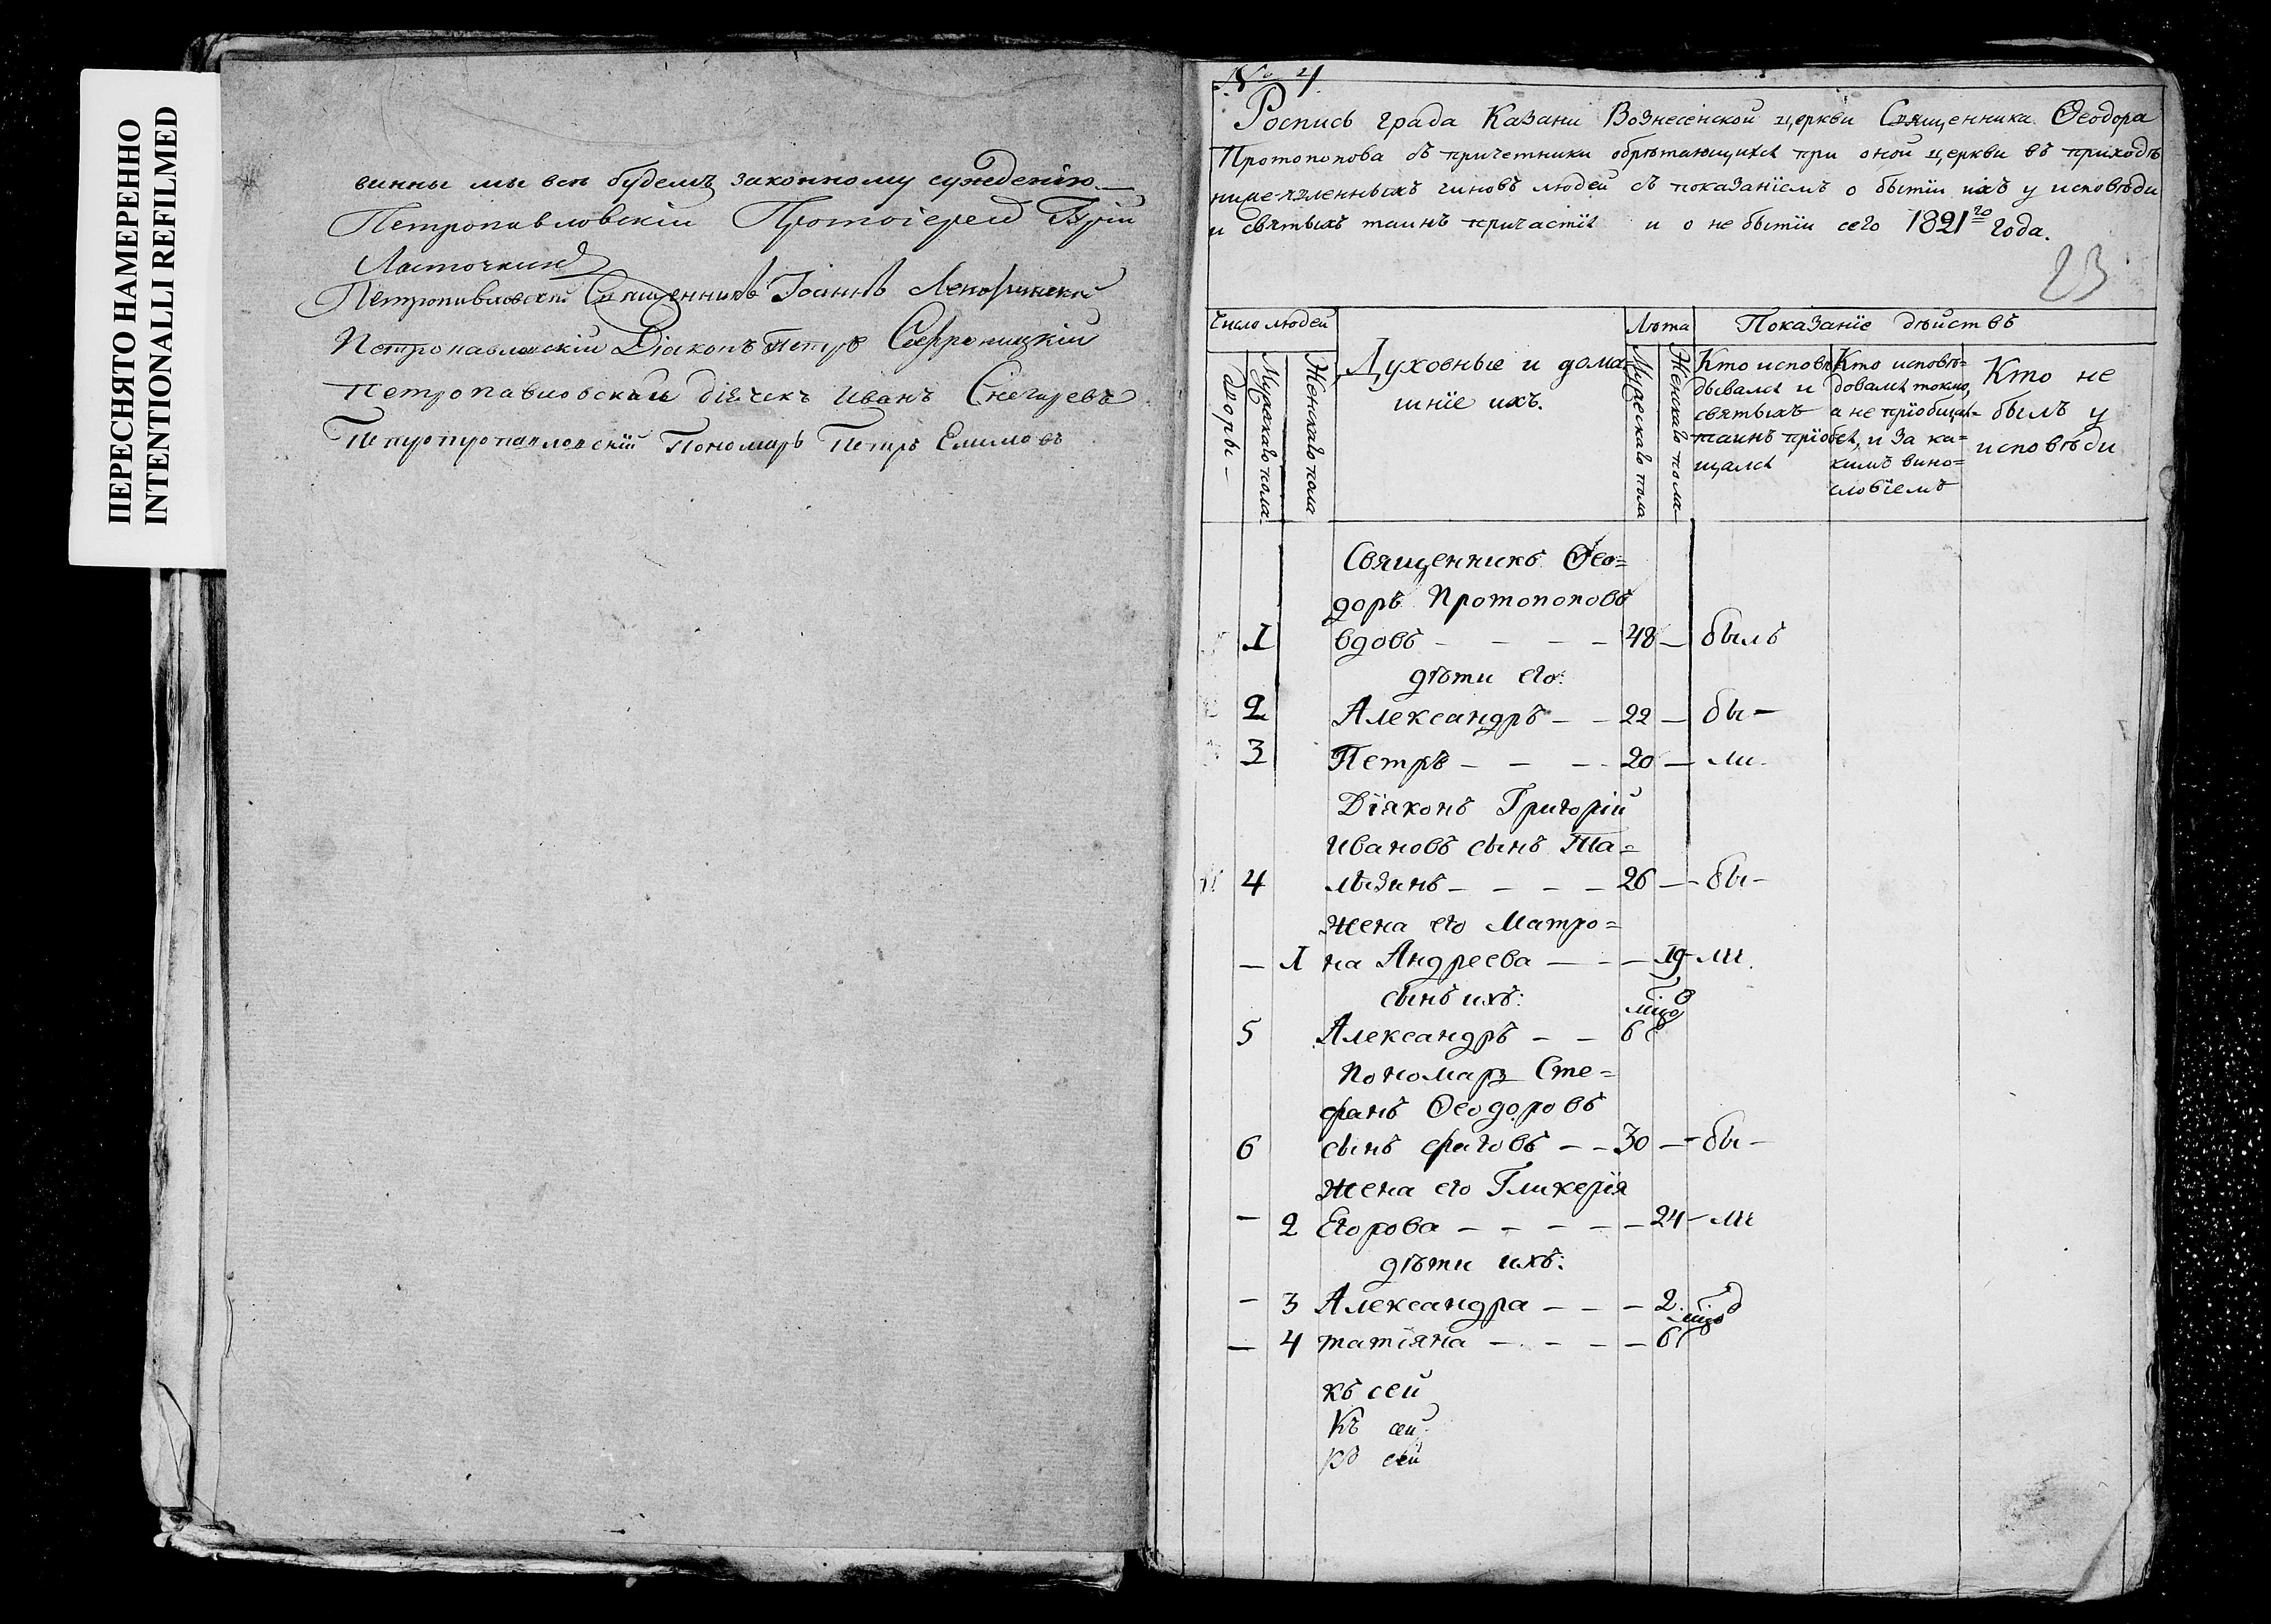 ПЕРЕСНЯТО НАМЕРЕННО
INTENTIONALLI REFILMED
винны мы всѣ будемъ законному сужденію.
Петропавловскій Протоіерей
Ласточкинъ
Петропавловскій Священникъ Іоаннъ
Петропавловскій Діаконъ Петръ Софроницкій
Петропавловскій дьячекъ Иванъ Снегиревъ
Пономарь Петръ
№ 4.
Роспись града Казани Вознесенской церкви Священника Ѳеодора
Протопопова съ причетники обрѣтающихся при оной церкви въ приходѣ
нижеявленныхъ чиновъ людей съ показаніемъ о бытіи ихъ у исповѣди
и святыхъ таинъ причастія и о не бытіи сего 1821го года.
23
Число людей
Дворы
Мужескаго пола
Женскаго пола
Духовные и дома=
шніе ихъ.
Лѣта
Мужескаго пола
Женскаго пола
Показаніе дѣйствъ
Кто исповѣ=
дывался и
святыхъ
таинъ пріоб
щался
Кто исповѣ=
довался токмо,
а не пріобщал=
ся, и за ка=
кимъ вино=
словіемъ
Кто не
былъ у
исповѣди
Священникъ Ѳео=
доръ Протопоповъ
1 вдовъ 48 былъ
дѣти его:
2 Александръ 22 бы-
3 Петръ 20 ли.
Діяконъ Григорій
Ивановъ сынъ Та=
4 лызинъ 26 бы-
жена его Матро=
1 на Андреева 19 ли.
сынъ ихъ:
5 Александръ 6
Пономарь Сте=
фанъ Ѳеодоровъ
6 сынъ 30 бы-
жена его Гликерія
2 Егорова 24 ли
дѣти ихъ:
3 Александра 2.
4 татіяна 6
къ сей
Къ сей
къ сей